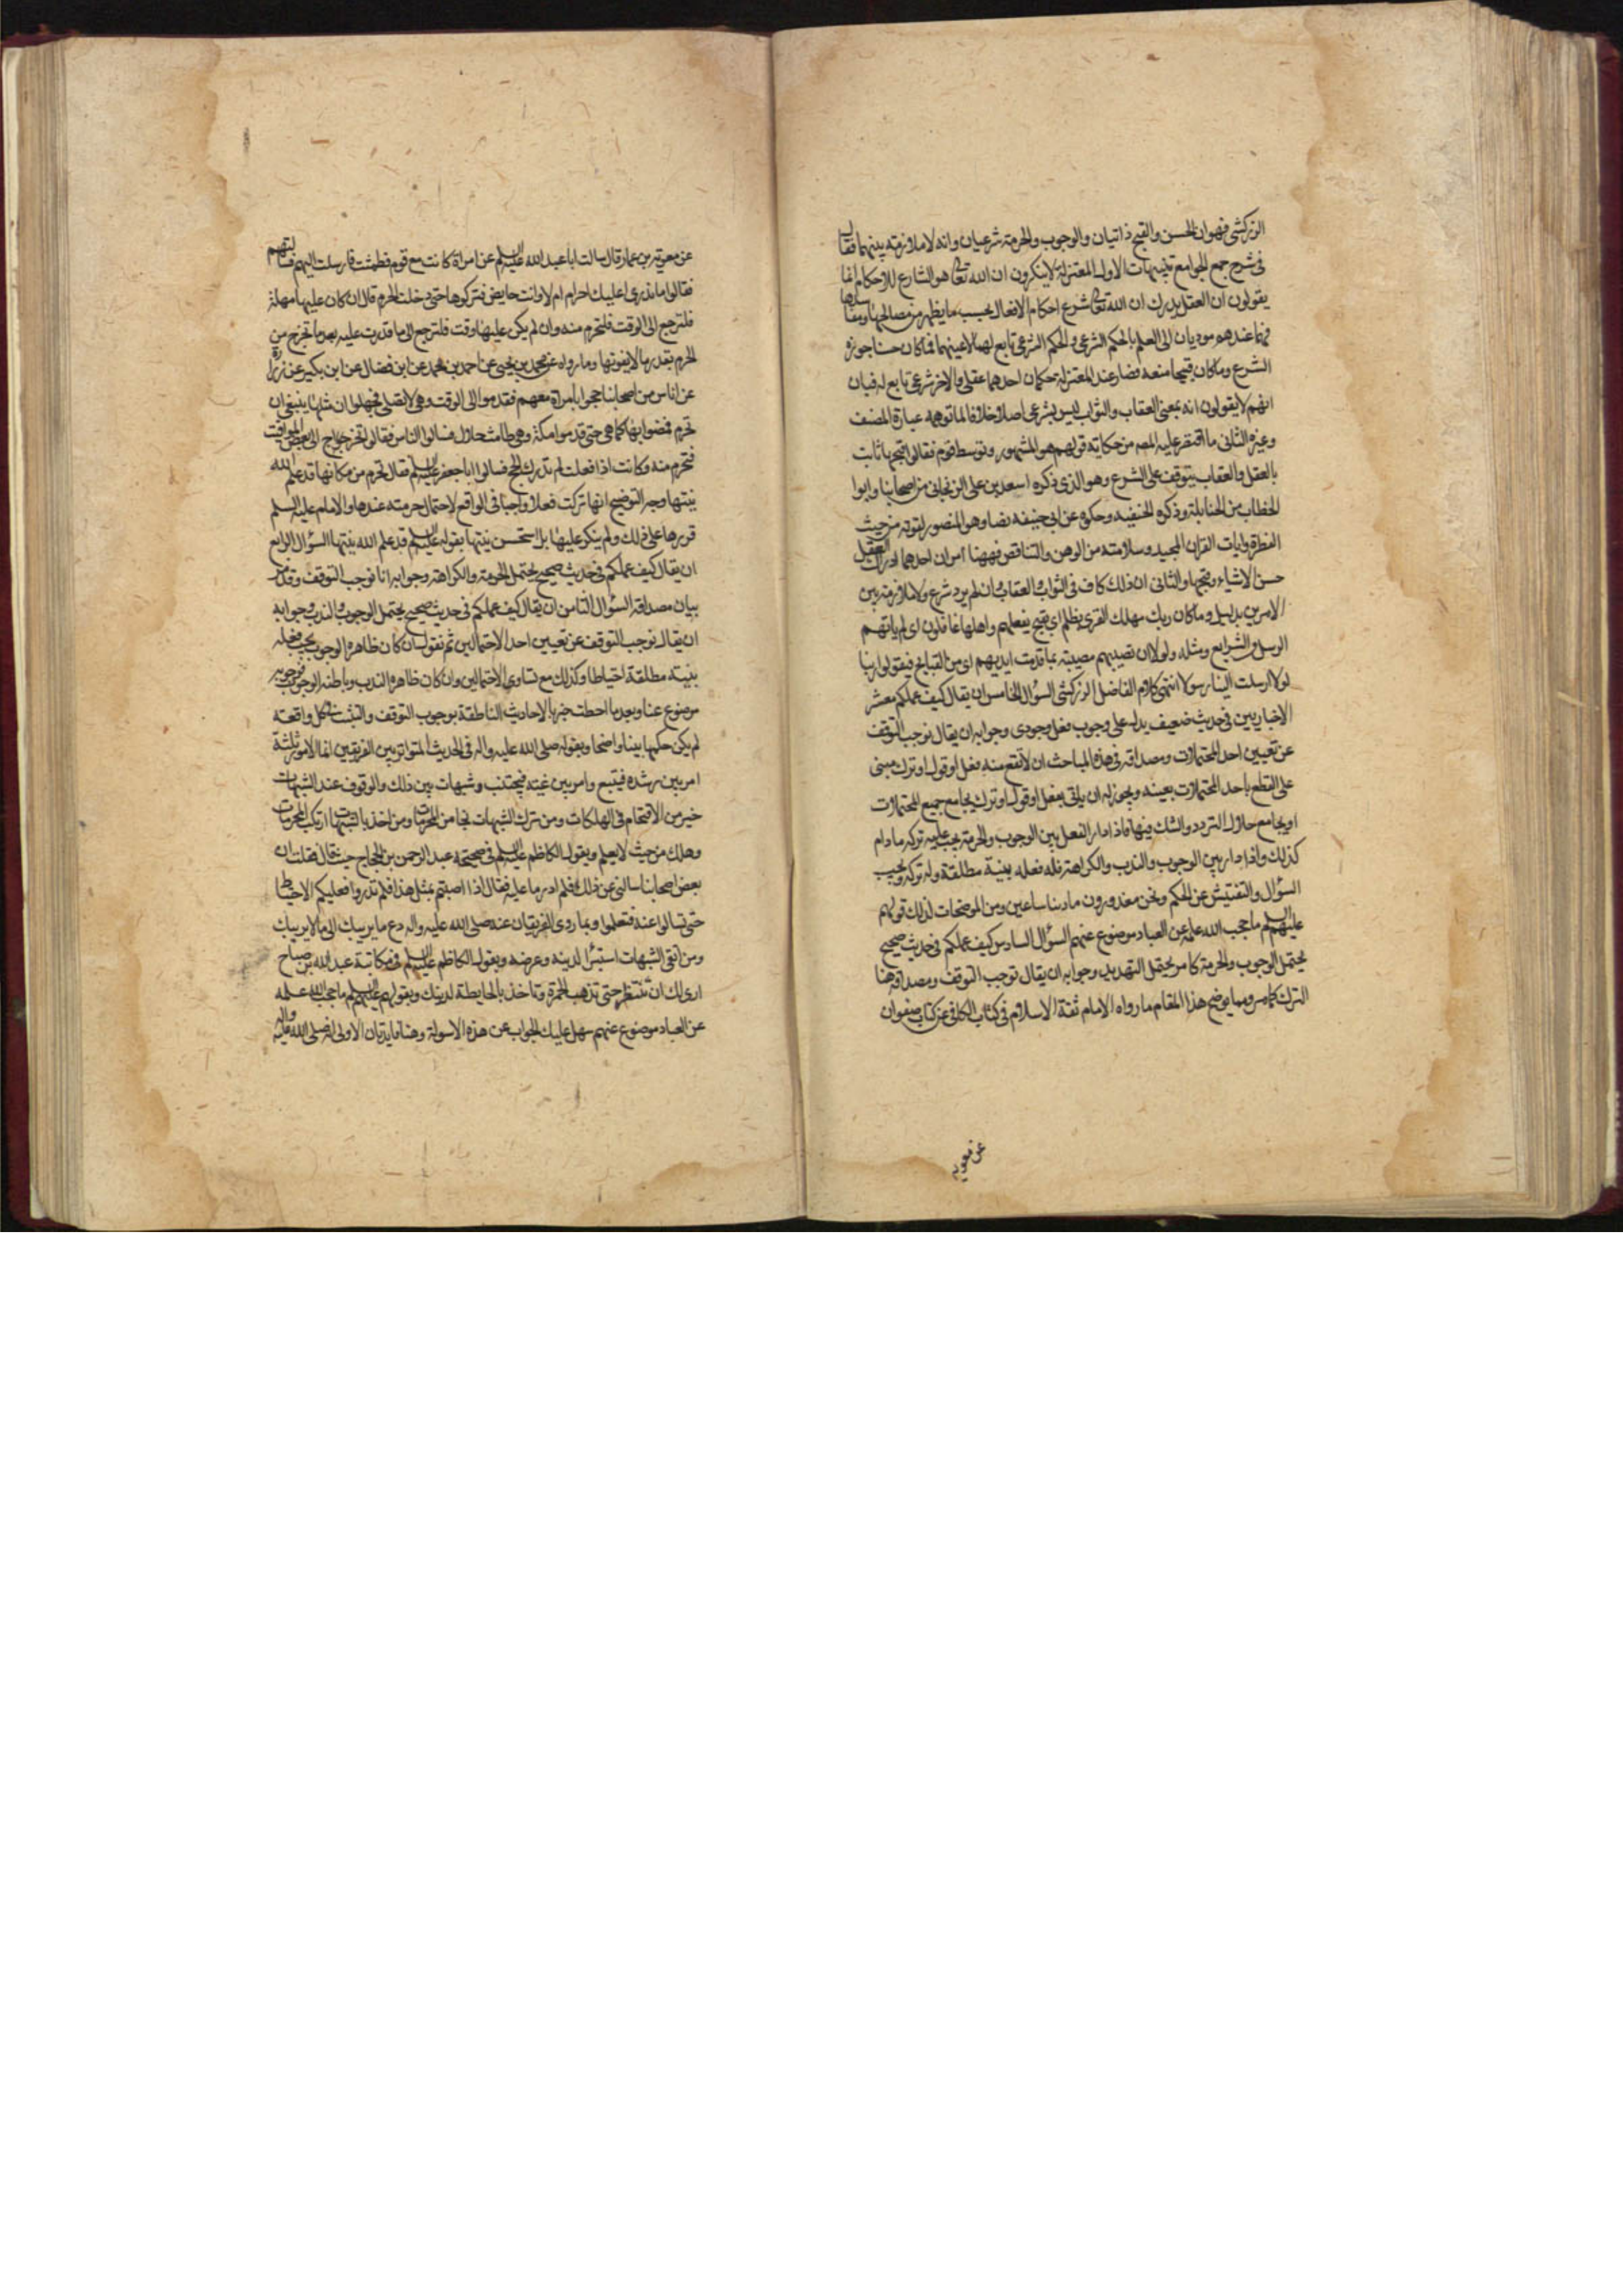 الزركشی فهو ان الحسن والقبح ذاتيان والوجوب والحرمة شرعيان وانه لا ملازمة بينهما فقال
فی شرح جمع الجوامع تنبيهات الاول المعتزلة لا ينكرون ان الله تعالی هو الشارع للاحكام انما
يقولون ان العقل يدرك ان الله تعالی شرع احكام الافعال بحسب ما يظهر من مصالحها ومفاسدها
فهما عندهم موديان الی العلم بالحكم الشرعی والحكم الشرعی تابع لهما لا عينهما فما كان حسنا جوزه
الشرع وما كان قبيحا منعه فصار عند المعتزلة حكمان احدهما عقلی والاخر شرعی تابع له فبان
انهم لا يقولون انه بمعنی العقاب والثواب ليس بشرعی اصلا خلافا لما توهمه عبارة المصنف
وغيره الثانی ما اقتصر عليه المص من حكاية قولهم هو المشهور وتوسط قوم فقالوا قبحها ثابت
بالعقل والعقاب يتوقف علی الشرع وهو الذی ذكره اسعد بن علی الزنجانی من اصحابنا وابوا
الخطاب من الحنابلة وذكره الحنفيه وحكوه عن ابی حنيفه نصا وهو المنصور لقوته من حيث
الفطرة وايات القران المجيد وسلامته من الوهن والتناقض فههنا امران احدهما ادراك العقل
حسن الاشياء وقبحها والثانی ان ذلك كاف فی الثواب والعقاب وان لم يرد شرع ولا ملازمة بين
الامرين بدليل وما كان ربك مهلك القری بظلم ای بقبح فعلهم واهلها غافلون ای لم ياتهم
الرسل والشرايع ومثله ولولا ان تصيبهم مصيبة بما قدمت ايديهم ای من القبايح فيقولوا ربنا
لولا ارسلت الينا رسولا انتهی كلام الفاضل الزركشی السؤال الخامس ان يقال كيف عملكم معشر
الاخباريين فی حديث ضعيف يدل علی وجوب فعل وجودی وجوابه ان يقال نوجب التوقف
عن تعيين احد المحتملات ومصداقه فی هذه المباحث ان لا تقع منه فعل او قول او ترك مبنی
علی القطع باحد المحتملات بعينه ويجوز له ان ياتی بفعل او قول او ترك يجامع جميع المحتملات
او يجامع حال التردد والشك فيها فاذا دار الفعل بين الوجوب والحرمة يجب عليه تركه ما دام
كذلك واذا دار بين الوجوب والندب والكراهة فله فعله بنية مطلقة وله تركه ويجب
السؤال والتفتيش عن الحكم ونحن معذورون ما دمنا ساعين ومن الموضحات لذلك قولهم
عليهم السلم ما حجب الله علمه عن العباد موضوع عنهم السؤال السادس كيف عملكم فی حديث صحيح
يحتمل الوجوب والحرمة كامر يحتمل التهديد وجوابه ان يقال نوجب التوقف ومصداقه هنا
الترك كما مر ومما يوضح هذا المقام ما رواه الامام ثقة الاسلام فی كتاب الكافی عن كتاب صفوان
عن معوية
عن معوية بن عمار قال سالت ابا عبد الله عليه السلم عن امراة كانت مع قوم فطمثت فارسلت اليهم فسالتهم
فقالوا ما ندری اعليك احرام ام لا وانت حايض فتركوها حتی دخلت الحرم قال ان كان عليها مهلة
فلترجع الی الوقت فلتحرم منه وان لم يكن عليها وقت فلترجع الی ما قدرت عليه بعد ما تخرج من
الحرم بقدر ما لا يفوتها وما رواه عن محمد بن يحيی عن احمد بن محمد عن ابن فضال عن ابن بكير عن زرارة
عن اناس من اصحابنا حجوا بامراة معهم فقدموا الی الوقت وهی لا تصلی فجهلوا ان مثلها ينبغی ان
تحرم فمضوا بها كما هی حتی قدموا مكة وهی طامث حلال فسالوا الناس فقالوا تخرج الی بعض المواقيت
فتحرم منه وكانت اذا فعلت لم تدرك الحج فسالوا ابا جعفر عليه السلم فقال تحرم من مكانها قد علم الله
نيتها وجه التوضيح انها تركت فعلا واجبا فی الواقع لاحتمال حرمته عندها والامام عليه السلم
قررها علی ذلك ولم ينكر عليها بل استحسن نيتها بقوله عليه السلم قد علم الله نيتها السؤال الرابع
ان يقال كيف عملكم فی حديث صحيح يحتمل الحرمة والكراهة وجوابه انا نوجب التوقف وقد مر
بيان مصداقه السؤال الثامن ان يقال كيف عملكم فی حديث صحيح يحتمل الوجوب والندب وجوابه
ان يقال نوجب التوقف عن تعيين احد الاحتمالين ثم نقول ان كان ظاهره الوجوب يجب فعله
بنية مطلقة احتياطا وكذلك مع تساوی الاحتمالين وان كان ظاهره الندب وباطنه الوجوب فوجوبه
موضوع عنا وبعد ما احطت خبرا بالاحاديث الناطقة بوجوب التوقف والتثبت فی كل واقعة
لم يكن حكمها بينا واضحا وبقوله صلی الله عليه واله فی الحديث المتواتر بين الفريقين انما الامور ثلثة
امر بين رشده فيتبع وامر بين غيه فيجتنب وشبهات بين ذلك والوقوف عند الشبهات
خير من الاقتحام فی الهلكات ومن ترك الشبهات نجا من المحرمات ومن اخذ بالشبهات ارتكب المحرمات
وهلك من حيث لا يعلم وبقول الكاظم عليه السلم فی صحيحة عبد الرحمن بن الحجاج حيث قال فقلت ان
بعض اصحابنا سالنی عن ذلك فلم ادر ما عليه فقال اذا اصبتم بمثل هذا فلم تدروا فعليكم الاحتياط
حتی تسالوا عنه فتعلموا وبما روی الفريقان عنه صلی الله عليه واله دع ما يريبك الی ما لا يريبك
ومن اتقی الشبهات استبرأ لدينه وعرضه وبقول الكاظم عليه السلم فی مكاتبة عبد الله بن صباح
اری لك ان تنتظر حتی تذهب الحمرة وتاخذ بالحايطة لدينك وبقولهم عليهم السلم ما حجب الله علمه
عن العباد موضوع عنهم سهل عليك الجواب عن هذه الاسولة وهنا فايدتان الاولی انه صلی الله عليه واله